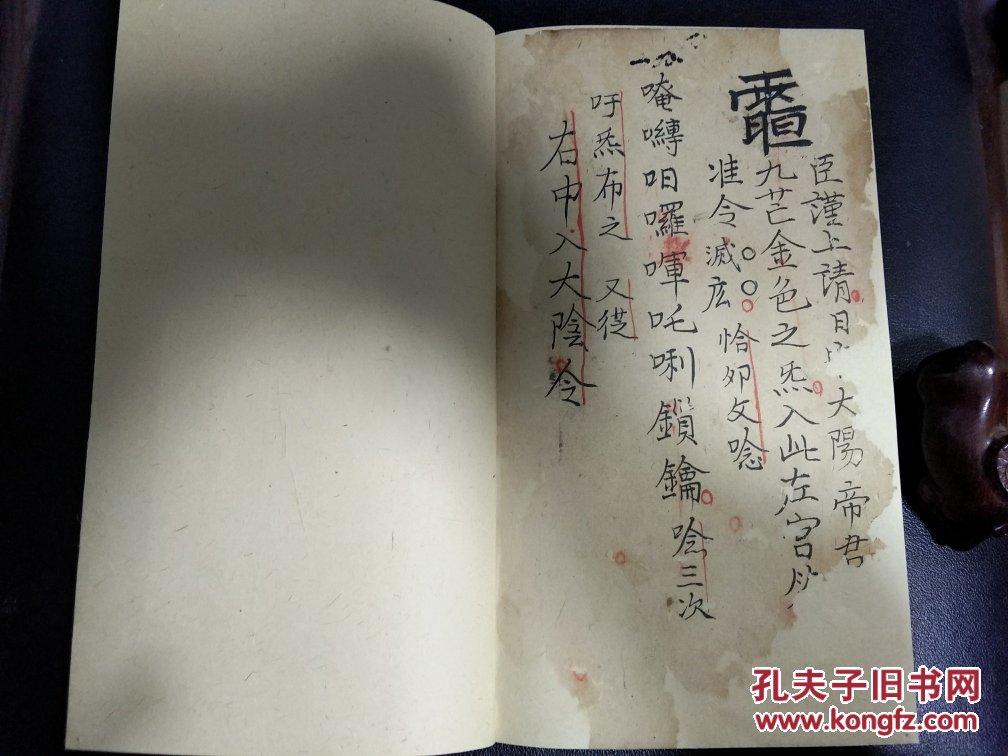 臣謹上請日 大陽帝君
九芒金色之炁入此左宮
准令滅 恰卯文唸
唵囀呾囉㖸吒唎鎖鑰唸三次
吁炁布之 又從
右中入大陰令
孔夫子旧书网
www.kongfz.com